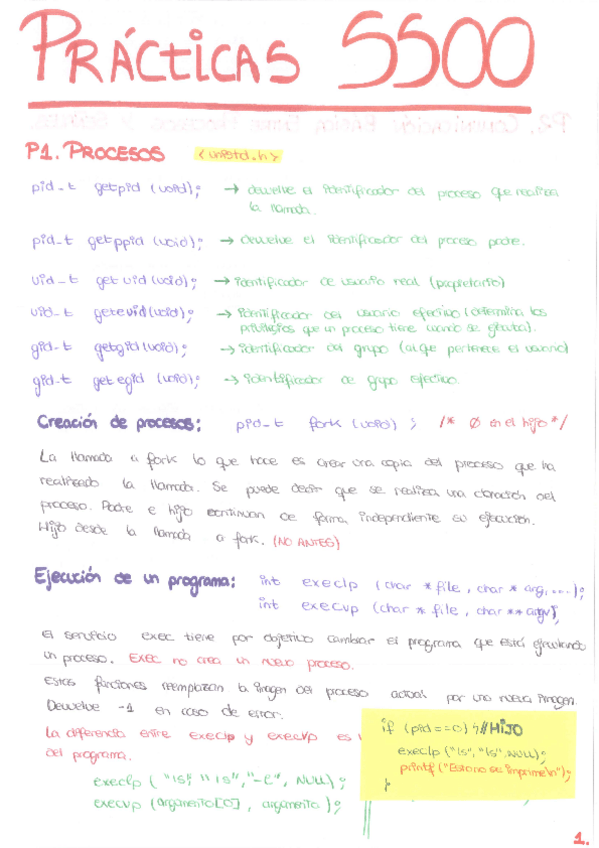 PRÁCTICAS SSOO
P1. PROCESOS <unistd.h>
pid_t getpid (void); → devuelve el identificador del proceso que realiza
la llamada.
pid_t getppid (void); → devuelve el identificador del proceso padre.
uid_t getuid (void); → identificador de usuario real (propietario)
uid_t geteuid (void); → identificador del usuario efectivo (determina los
privilegios que un proceso tiene cuando se ejecuta).
gid_t getgid (void); → identificador del grupo (al que pertenece el usuario)
gid_t getegid (void); → identificador de grupo efectivo.
Creación de procesos: pid_t fork (void) ; /* Ø en el hijo */
La llamada a fork lo que hace es crear una copia del proceso que ha
realizado la llamada. Se puede decir que se realiza una clonación del
proceso. Padre e hijo continúan de forma independiente su ejecución.
Hijo desde la llamada a fork. (NO ANTES)
Ejecución de un programa: int execlp (char * file, char * arg, ...);
int execvp (char * file, char ** argv);
el servicio exec tiene por objetivo cambiar el programa que está ejecutando
un proceso. EXEC no crea un nuevo proceso.
Estas funciones reemplazan la imagen del proceso actual por una nueva imagen.
Devuelve -1 en caso de error.
La diferencia entre execlp y execvp es
del programa.
if (pid==0) { //HIJO
execlp ("ls", "ls", NULL);
printf ("Esto no se imprime\n");
}
execlp ( "ls", "ls", "-l", NULL) ;
execvp (argumento[0] , argumento ) ;
1.